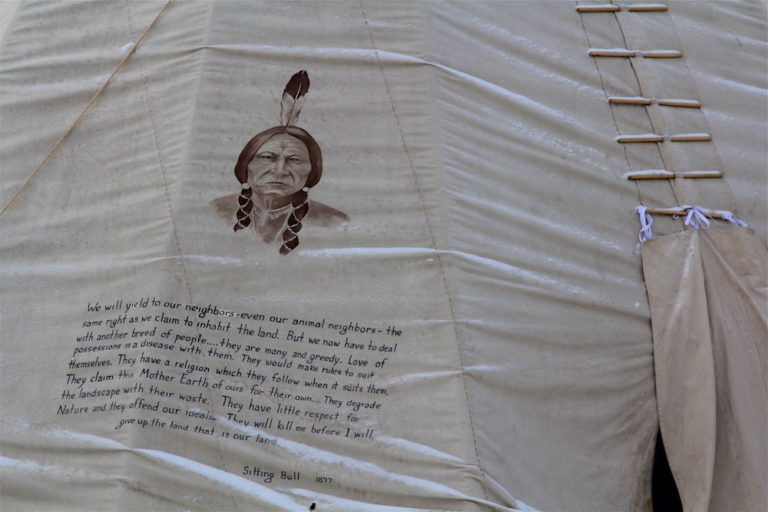 We will yield to our neighbors-even our animal neighbors-the
same right as we claim to inhabit the land. But we now have to deal
with another breed of people....they are many and greedy. Love of
possessions is a disease with them. They would make rules to suit
themselves. They have a religion which they follow when it suits them.
They claim this Mother Earth of ours for their own... They degrade
the landscape with their waste. They have little respect for
Nature and they offend our ideals. They will kill me before I will
give up the land that is our land.
Sitting Bull 1877